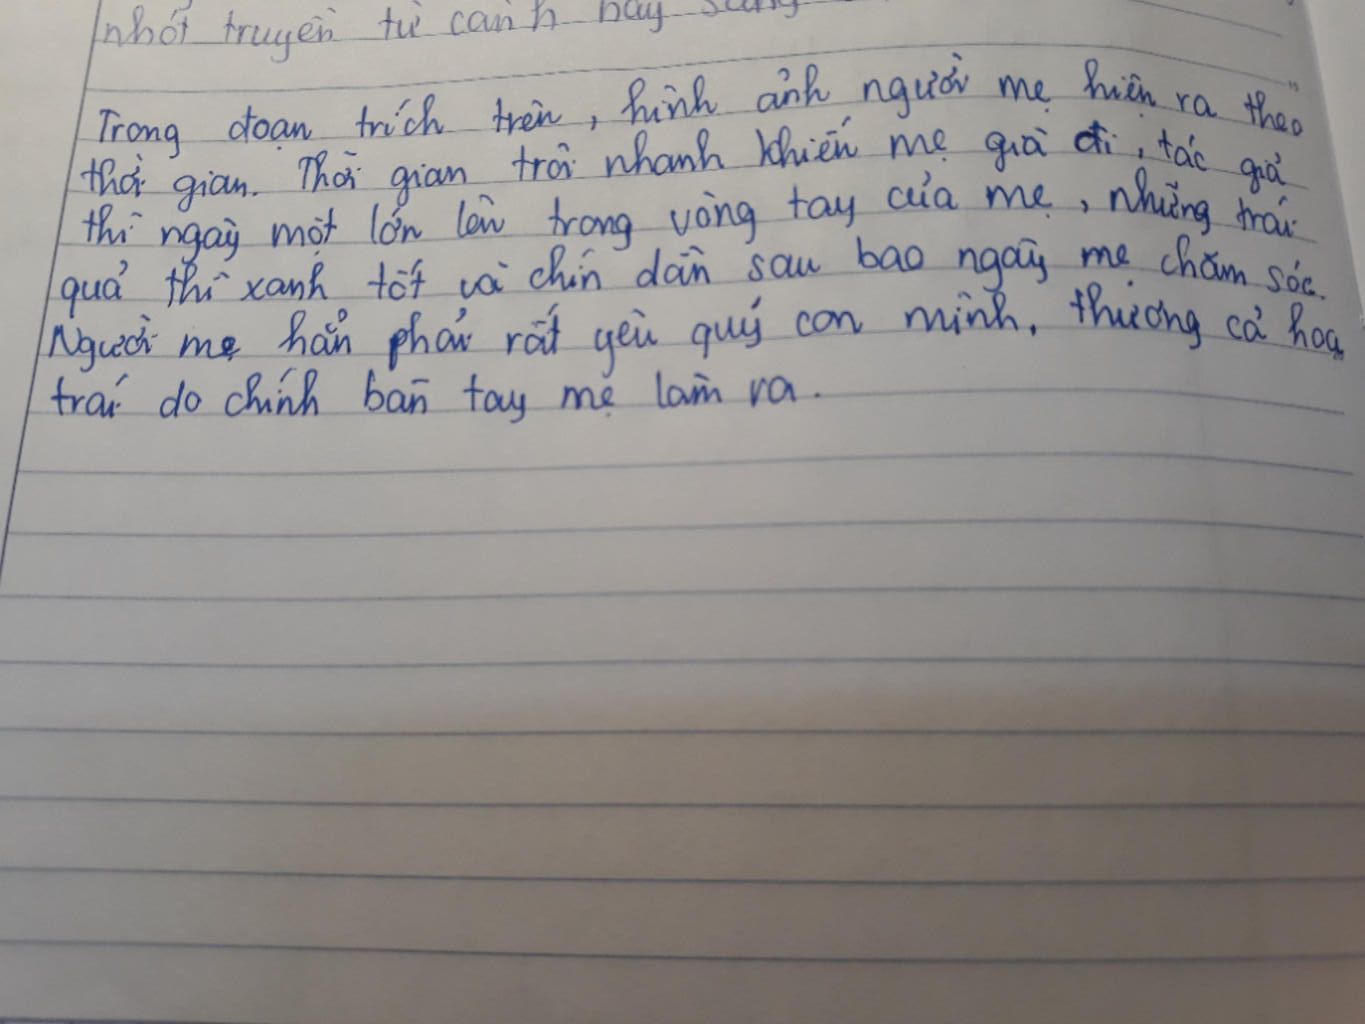 nhót truyền từ cành này sang
Trong đoạn trích trên, hình ảnh người mẹ hiện ra theo
thời gian. Thời gian trôi nhanh khiến mẹ già đi, tác giả
thì ngày một lớn lên trong vòng tay của mẹ, những trái
quả thì xanh tốt và chín dần sau bao ngày mẹ chăm sóc.
Người mẹ hẳn phải rất yêu quý con mình, thương cả hoa
trái do chính bàn tay mẹ làm ra.